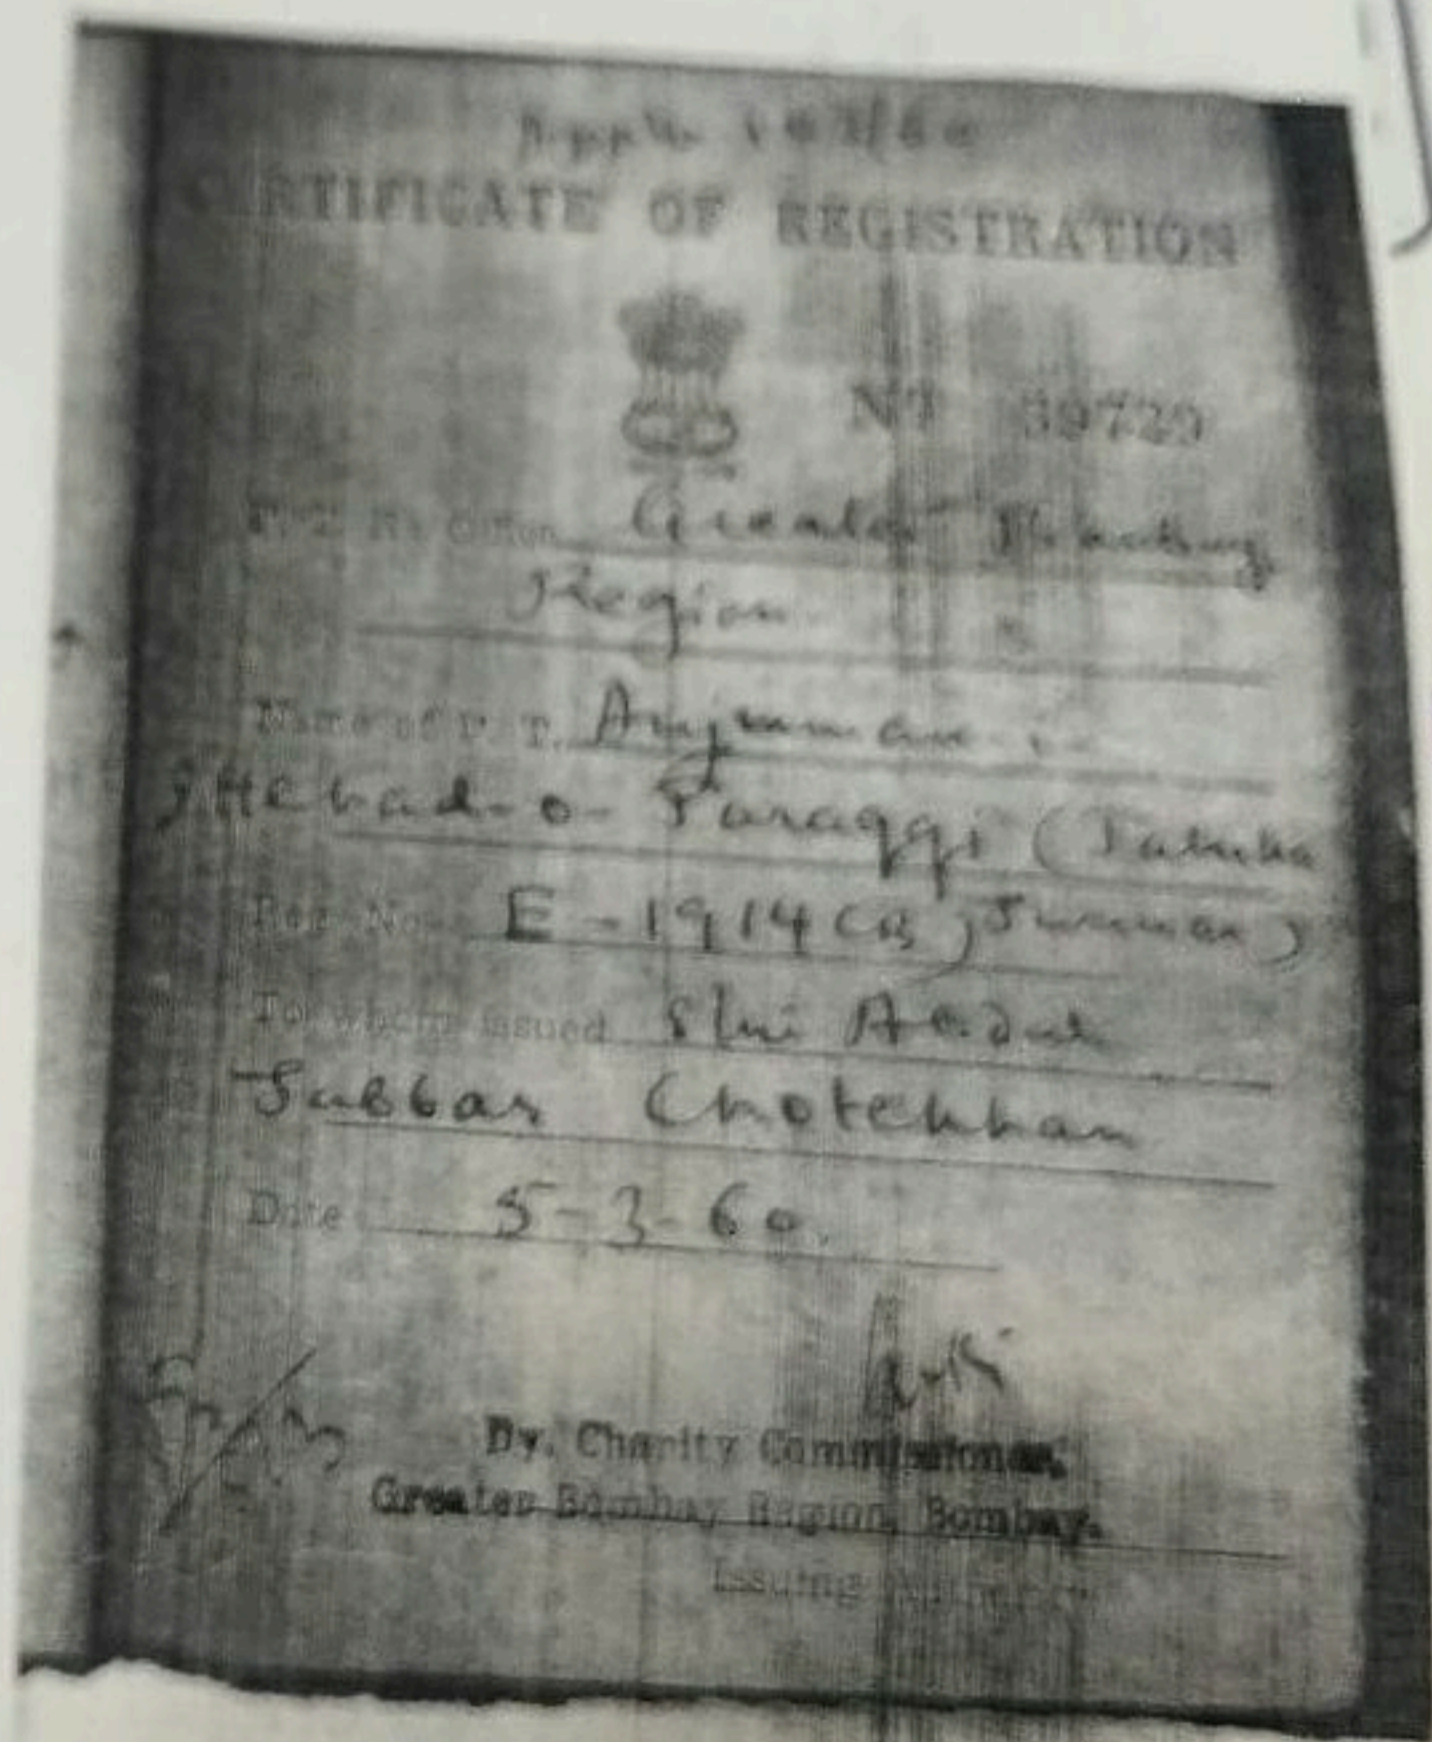 CERTIFICATE OF REGISTRATION
No 39729
P. T. R. Office Greater Bombay
Region.
Name of P. T. Anjuman-i-
Ittehad-o-Taraqqi (Taluka
Reg. No. E-1914 (B) Junnar)
To whom issued Shri Abdul
Jabbar Chotekhan
Date 5-3-60.
Dy. Charity Commissioner,
Greater Bombay Region, Bombay.
Issuing